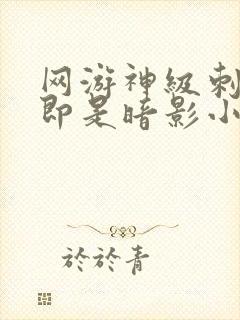 网游神级刺
即是暗影小
於於青